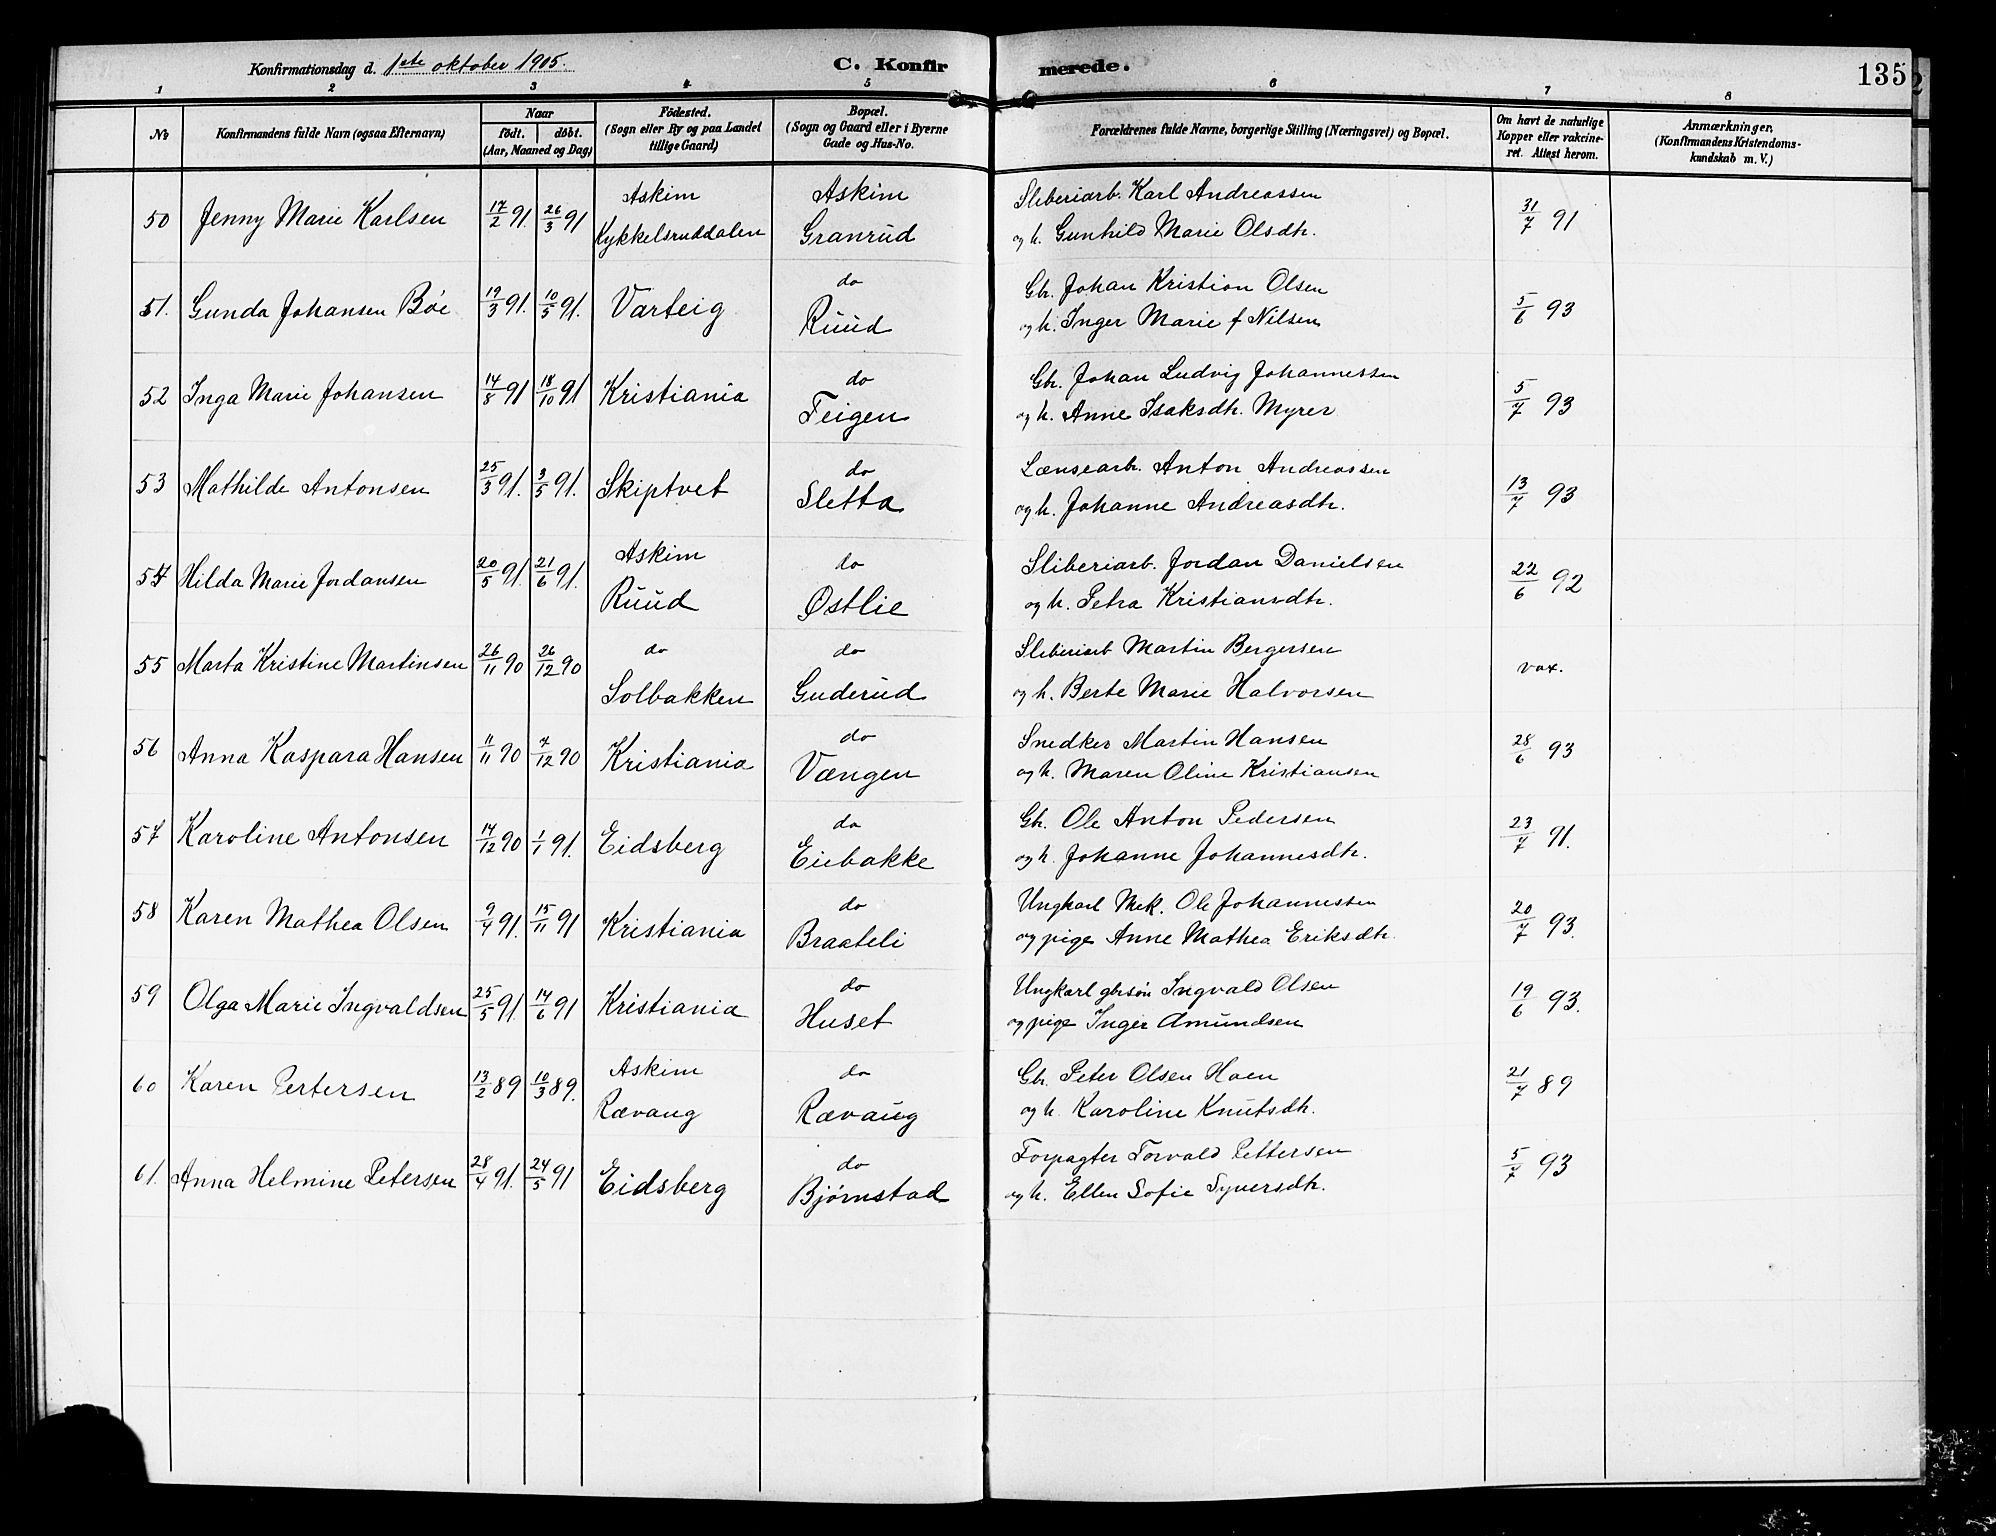 Konfirmationsdag d. 1ste oktober 1905.
C. Konfir
merede.
135
1 2 3 4 5 6 7 8
No
Konfirmandens fulde Navn (ogsaa Efternavn)
Naar
födt. döbt.
(Aar, Maaned og Dag)
Födested.
(Sogn eller By og paa Landet
tillige Gaard)
Bopæl.
(Sogn og Gaard eller i Byerne
Gade og Hus-No.
Forældrenes fulde Navne, borgerlige Stilling (Næringsvei) og Bopæl.
Om havt de naturlige
Kopper eller vakcine-
ret. Attest herom.
Anmærkninger,
(Konfirmandens Kristendoms-
kundskab m. V.)
50 Jenny Marie Karlsen 17/2 91. 26/3 91 Askim Kykkelsruddalen Askim Granrud Sliberiarb. Karl Andreassen
og h. Gunhild Marie Olsdtr. 31/7 91
51. Gunda Johansen Bøe 19/3 91. 10/5 91. Varteig do Ruud Gbr. Johan Kristian Olsen
og h. Inger Marie f Nilsen 5/6 93
52 Inga Marie Johansen 14/8 91 18/10 91 Kristiania do Feigen Gbr. Johan Ludvig Johannessen
og h. Anne Isaksdtr. Myrer 5/7 93
53 Mathilde Antonsen 25/3 91. 3/5 91. Skiptvet do Sletta Lænsearb. Anton Andreassen
og h. Johanne Andreasdtr. 13/7 93
54 Hilda Marie Jordansen 20/5 91. 21/6 91. Askim Ruud do Østlie Sliberiarb. Jordan Danielsen
og h. Petra Kristiansdtr. 22/6 92
55 Marta Kristine Martinsen 26/11 90 26/12 90 do Solbakken do Guderud Sliberiarb Martin Bergersen
og h. Berte Marie Halvorsen vax.
56 Anna Kaspara Hansen 11/11 90 7/12 90 Kristiania do Vængen Snedker Martin Hansen
og h. Maren Oline Kristiansen 28/6 93
57 Karoline Antonsen 14/12 90 1/1 91. Eidsberg do Eiebakke Gbr. Ole Anton Pedersen
og h. Johanne Johannesdtr. 23/7 91.
58 Karen Mathea Olsen 9/4 91. 15/11 91 Kristiania do Braateli Ungkarl Mek. Ole Johannessen
og pige Anne Mathea Eriksdtr. 20/7 93.
59 Olga Marie Ingvaldsen 25/5 91. 14/6 91 Kristiania do Huset Ungkarl gbrsøn Ingvald Olsen
og pige Inger Amundsen 19/6 93.
60 Karen Pertersen 13/2 89 10/3 89. Askim Rævaug do Rævaug Gbr. Peter Olsen Haen
og h. Karoline Knutsdtr. 21/7 89
61. Anna Helmine Petersen 28/4 91. 24/5 91 Eidsberg do Bjørnstad Forpagter Torvald Pettersen
og h. Ellen Sofie Syversdtr. 5/7 93